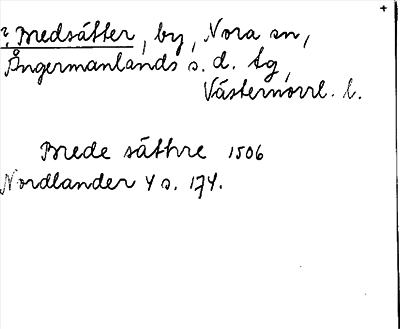 ? Bredsätter, by, Nora sn,
Ångermanlands s. d. tg,
Västernorrl. l.
Brede säthre 1506
Nordlander 4 s. 174.